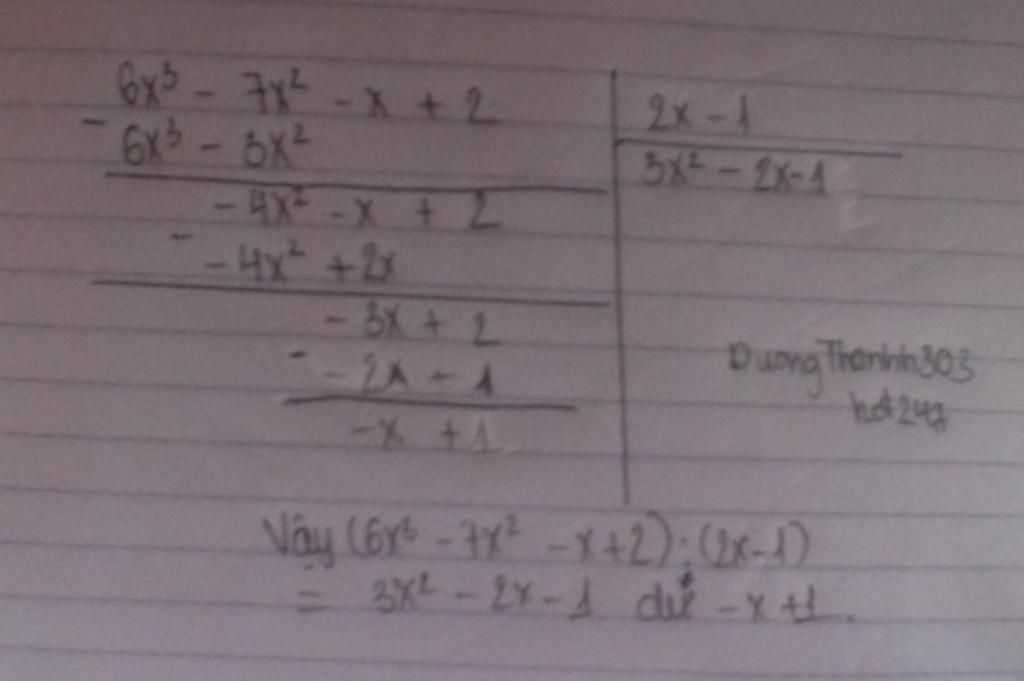 6x³ - 7x² - x + 2
2x - 1
- 6x³ - 3x²
3x² - 2x - 1
- 4x² - x + 2
- - 4x² + 2x
- 3x + 2
- - 2x - 1
- x + 1
DuongThanhh303
hoi247
Vậy (6x³ - 7x² - x + 2) : (2x - 1)
= 3x² - 2x - 1 dư - x + 1.